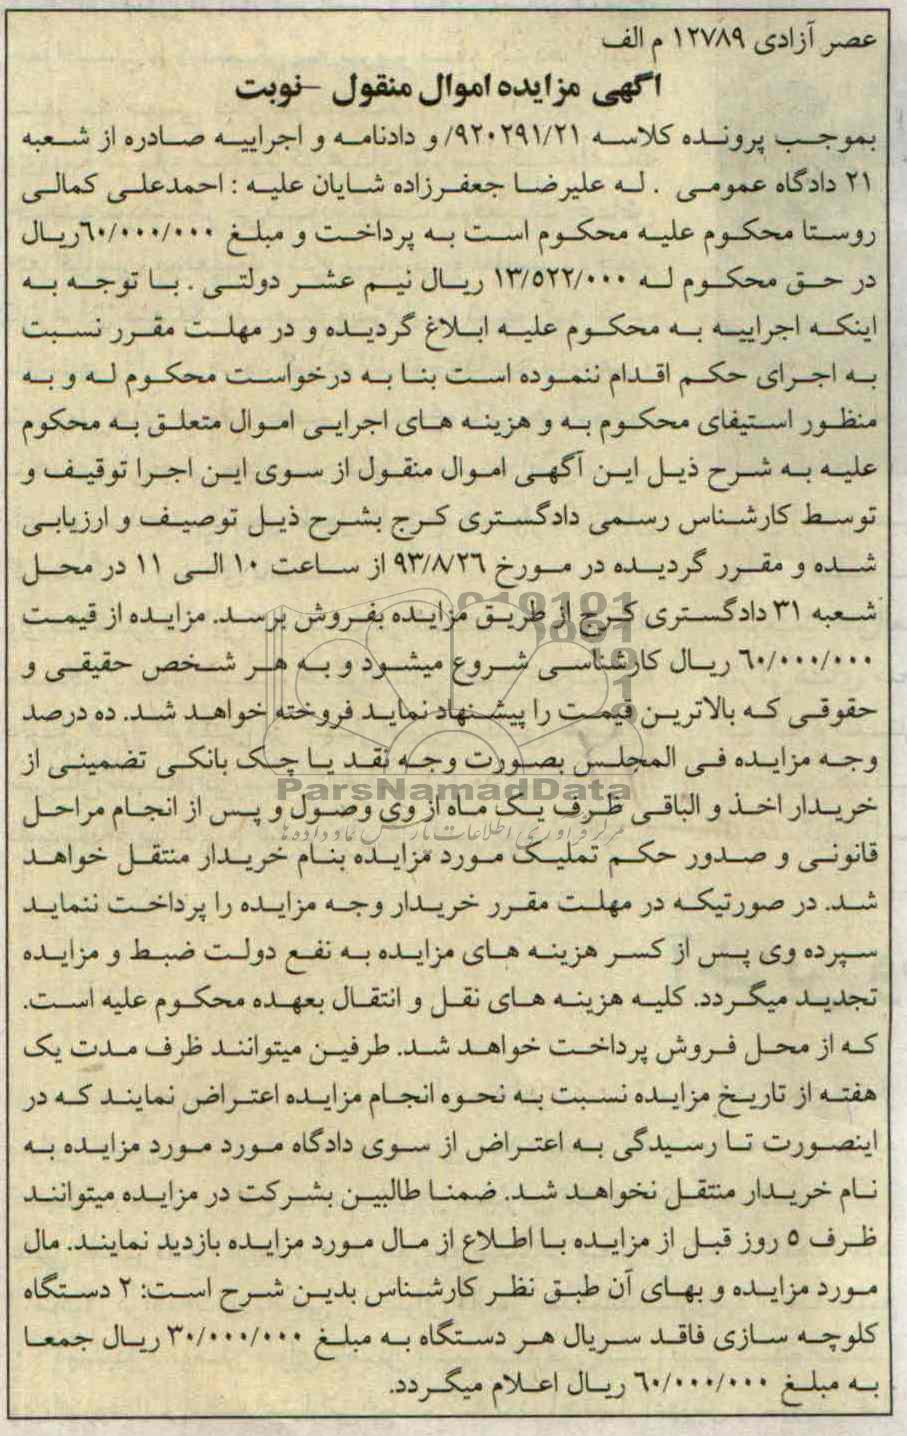 عصر آزادی ۱۲۷۸۹ م الف
آگهی مزایده اموال منقول -نوبت
بموجب پرونده کلاسه ۹۲۰۲۹۱/۲۱/ و دادنامه و اجراییه صادره از شعبه
۲۱ دادگاه عمومی . له علیرضا جعفرزاده شایان علیه : احمدعلی کمالی
روستا محکوم علیه محکوم است به پرداخت و مبلغ ۶۰/۰۰۰/۰۰۰ریال
در حق محکوم له ۱۳/۵۲۲/۰۰۰ ریال نیم عشر دولتی . با توجه به
اینکه اجراییه به محکوم علیه ابلاغ گردیده و در مهلت مقرر نسبت
به اجرای حکم اقدام ننموده است بنا به درخواست محکوم له و به
منظور استیفای محکوم به و هزینه های اجرایی اموال متعلق به محکوم
علیه به شرح ذیل این آگهی اموال منقول از سوی این اجرا توقیف و
توسط کارشناس رسمی دادگستری کرج بشرح ذیل توصیف و ارزیابی
شده و مقرر گردیده در مورخ ۹۳/۸/۲۶ از ساعت ۱۰ الی ۱۱ در محل
شعبه ۳۱ دادگستری کرج از طریق مزایده بفروش برسد. مزایده از قیمت
۶۰/۰۰۰/۰۰۰ ریال کارشناسی شروع میشود و به هر شخص حقیقی و
حقوقی که بالاترین قیمت را پیشنهاد نماید فروخته خواهد شد. ده درصد
وجه مزایده فی المجلس بصورت وجه نقد یا چک بانکی تضمینی از
ParsNamadData
خریدار اخذ و الباقی ظرف یک ماه از وی وصول و پس از انجام مراحل
مرکز فرآوری اطلاعات پارس نماد داده ها
قانونی و صدور حکم تملیک مورد مزایده بنام خریدار منتقل خواهد
شد. در صورتیکه در مهلت مقرر خریدار وجه مزایده را پرداخت ننماید
سپرده وی پس از کسر هزینه های مزایده به نفع دولت ضبط و مزایده
تجدید میگردد. کلیه هزینه های نقل و انتقال بعهده محکوم علیه است.
که از محل فروش پرداخت خواهد شد. طرفین میتوانند ظرف مدت یک
هفته از تاریخ مزایده نسبت به نحوه انجام مزایده اعتراض نمایند که در
اینصورت تا رسیدگی به اعتراض از سوی دادگاه مورد مورد مزایده به
نام خریدار منتقل نخواهد شد. ضمنا طالبین بشرکت در مزایده میتوانند
ظرف ۵ روز قبل از مزایده با اطلاع از مال مورد مزایده بازدید نمایند. مال
مورد مزایده و بهای آن طبق نظر کارشناس بدین شرح است: ۲ دستگاه
کلوچه سازی فاقد سریال هر دستگاه به مبلغ ۳۰/۰۰۰/۰۰۰ ریال جمعا
به مبلغ ۶۰/۰۰۰/۰۰۰ ریال اعلام میگردد.